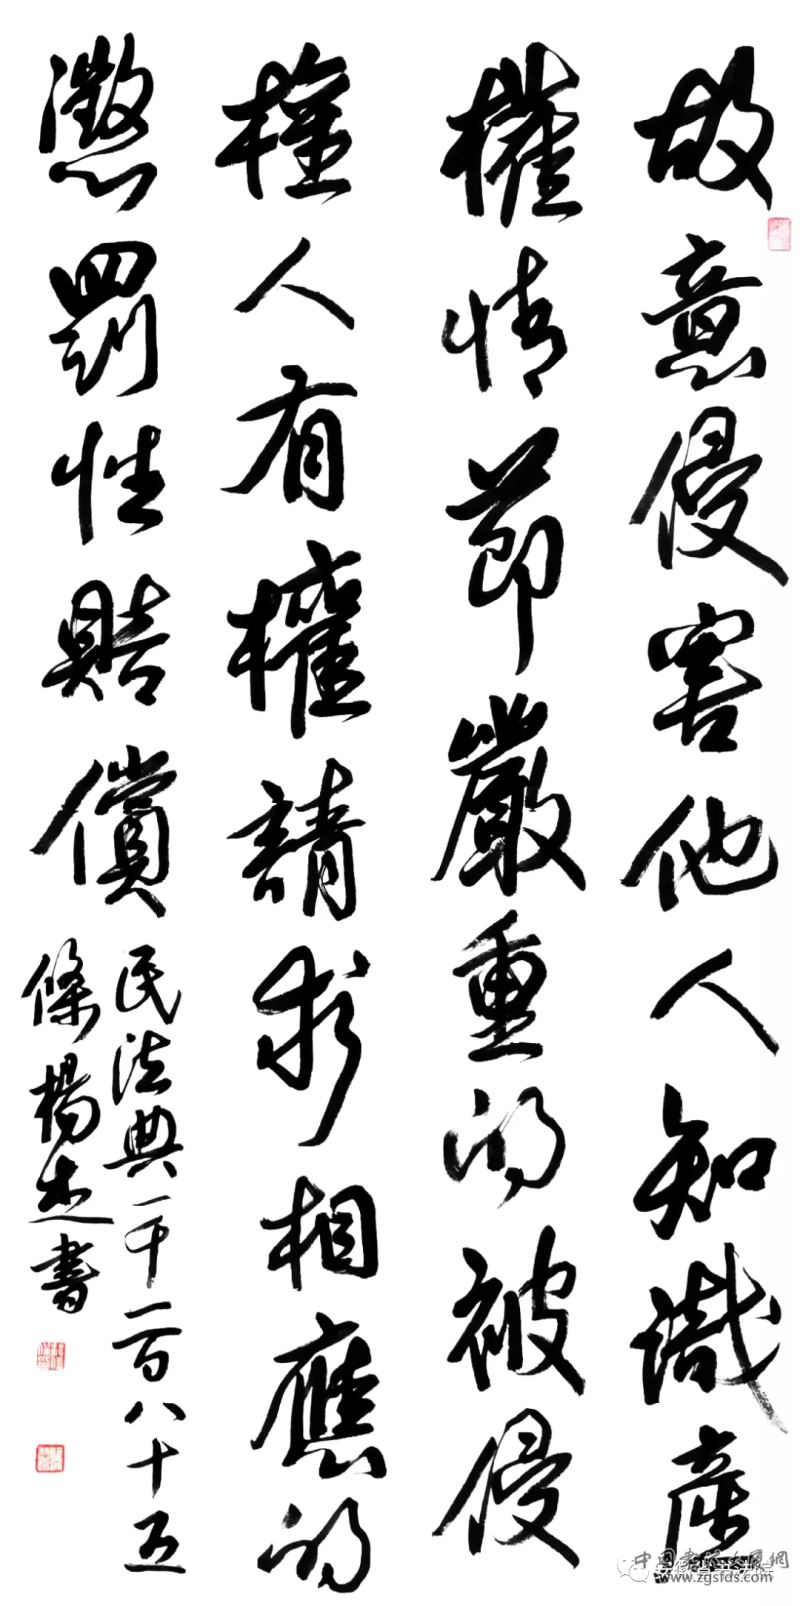 故意侵害他人知識產
權情節嚴重的被侵
權人有權請求相應的
懲罰性賠償
民法典一千一百八十五
條楊杰書
中国書法大展網
www.zgsfds.com